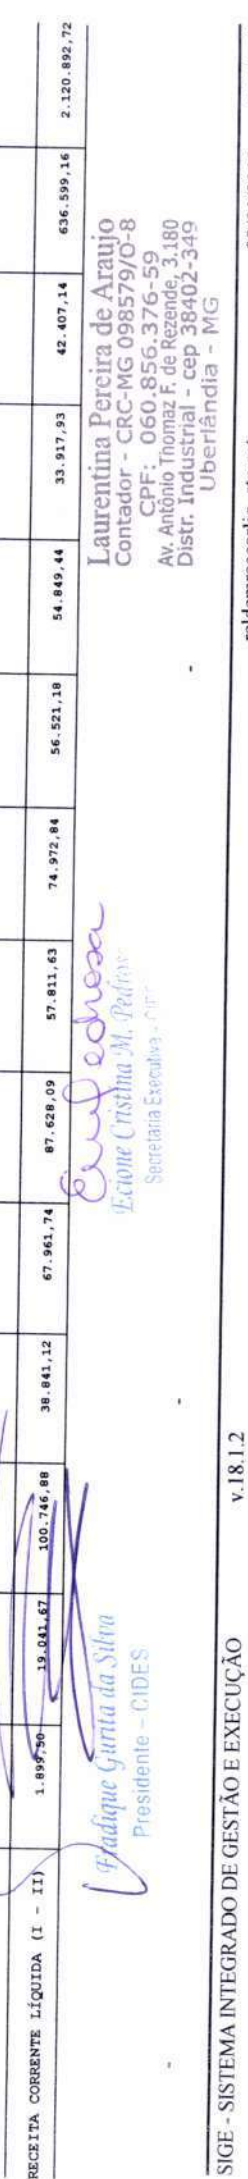 RECEITA CORRENTE LÍQUIDA (I - II) 1.899,50 19.041,67 100.746,88 38.841,12 67.961,74 87.628,09 57.811,63 74.972,84 56.521,18 54.849,44 33.917,93 42.407,14 636.599,16 2.120.892,72
Eradique Gurita da Silva
Presidente - CIDES
Ecione Cristina M. Pedrosa
Secretaria Executiva -
Laurentina Pereira de Araujo
Contador - CRC-MG 098579/O-8
CPF: 060.856.376-59
Av. Antônio Thomaz F. de Rezende, 3.180
Distr. Industrial - cep 38402-349
Uberlândia - MG
SIGE - SISTEMA INTEGRADO DE GESTÃO E EXECUÇÃO v.18.1.2